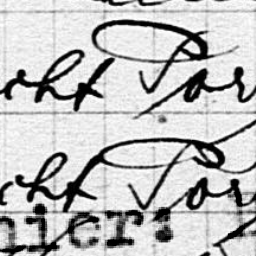 cht Por
cht Por
nier: